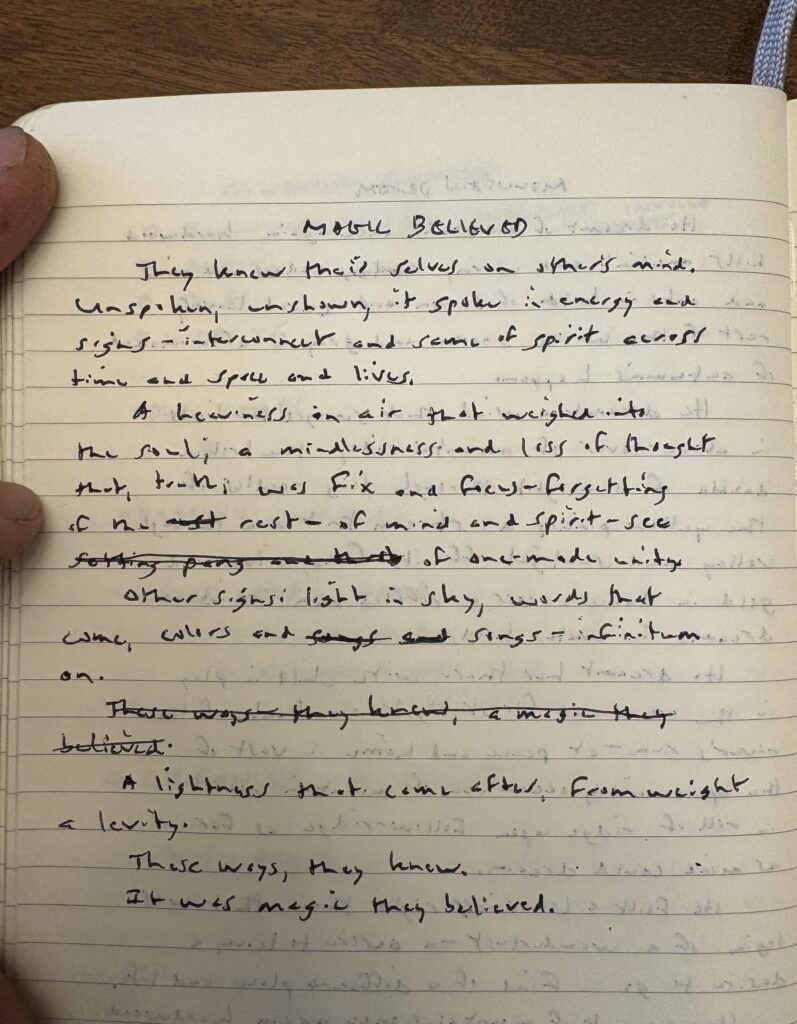 MAGIC BELIEVED
They knew their selves on other's mind.
Unspoken, unshown, it spoke in energy and
signs - interconnect and same of spirit across
time and space and lives.
A heaviness in air that weighed into
the soul; a mindlessness and loss of thought
that, truth, was fix and focus - forgetting
of the rest - of mind and spirit - see
of one-mode unity.
Other signs: light in sky, words that
come, colors and songs and songs - infinitum
on.
These ways - they knew, a magic they
believed.
A lightness that came after, from weight
a levity.
These ways, they knew.
It was magic they believed.